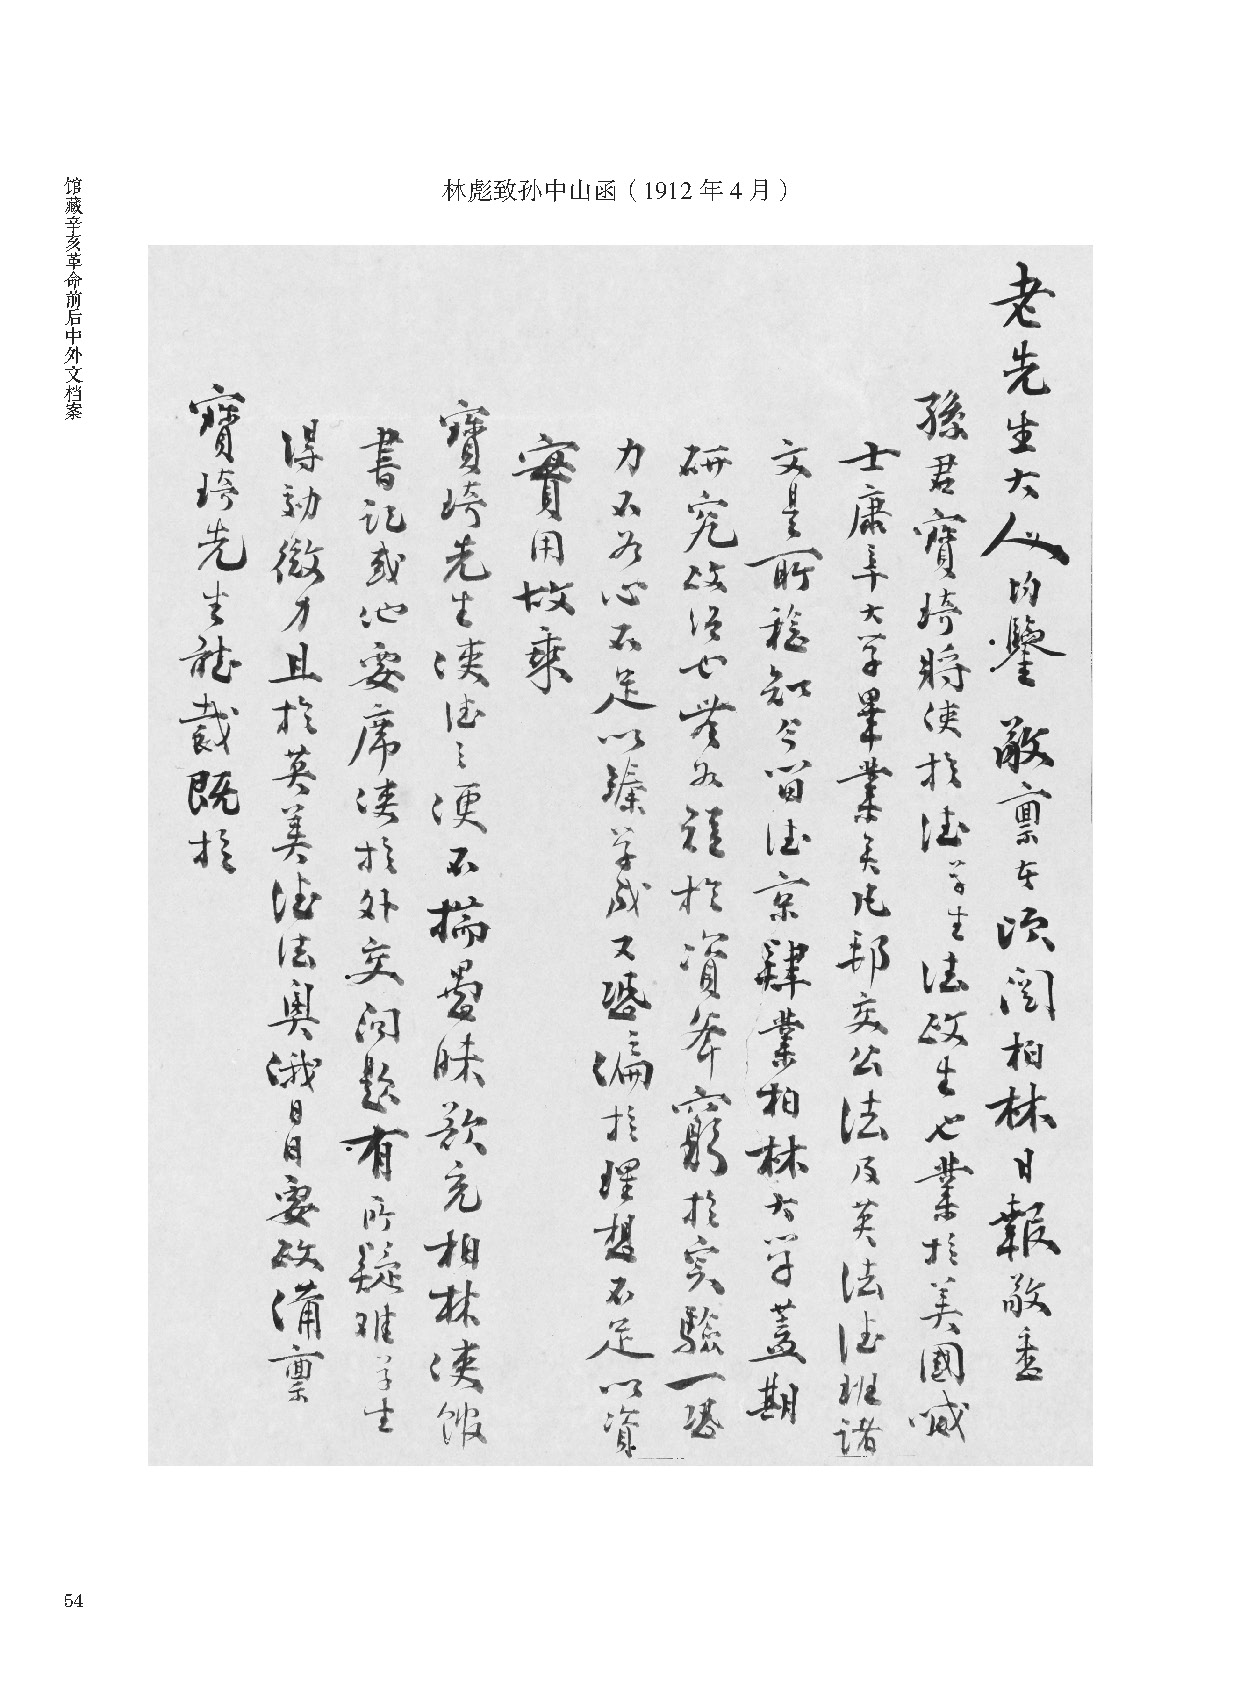 馆藏辛亥革命前后中外文档案
林彪致孙中山函（1912年4月）
老先生大人均鑒敬禀者頃閱柏林日報敬悉
孫君寶琦將使於德學生法政生也業於美國喊
士康辛大學畢業矣凡邦交公法及英法德班諸
文是所稔知今留德京肄業柏林大學蓋期
研究政治也無如於資斧窮於实驗一恐
力不如心不足以臻學成又恐偏於理想不足以資
實用故乘
寶琦先生使德之便不揣愚昧欲充柏林使館
書記或他要席使於外交问題有所疑难學生
得効微才且於英美德法奥俄要政禀
寶琦先生裁既於
54